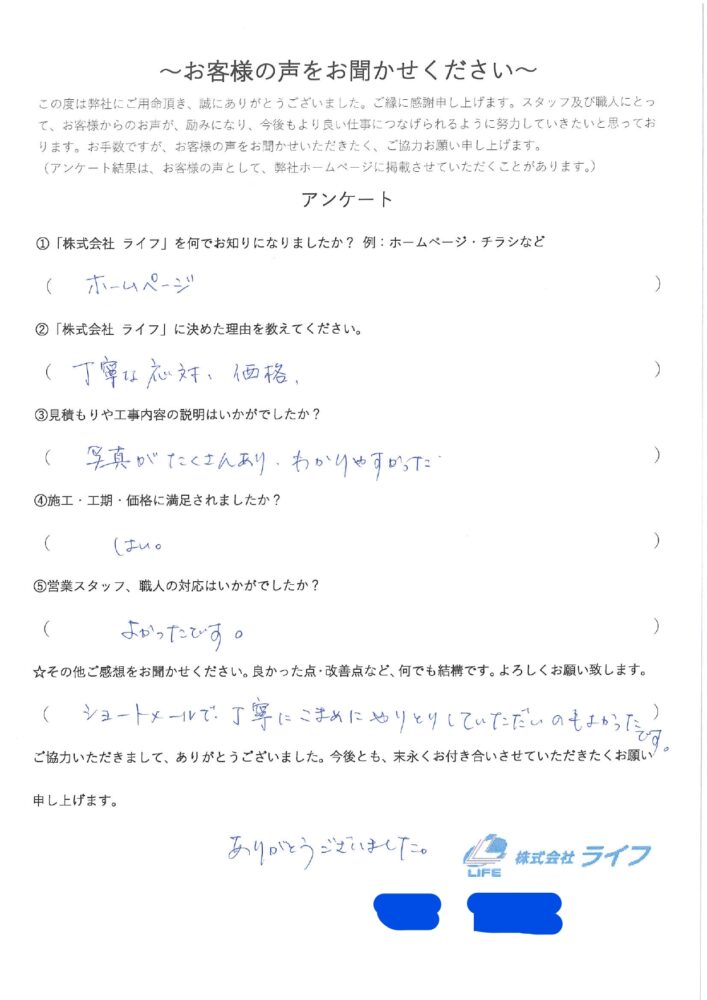 ～お客様の声をお聞かせください～
この度は弊社にご用命頂き、誠にありがとうございました。ご縁に感謝申し上げます。スタッフ及び職人にとっ
て、お客様からのお声が、励みになり、今後もより良い仕事につなげられるように努力していきたいと思ってお
ります。お手数ですが、お客様の声をお聞かせいただきたく、ご協力お願い申し上げます。
（アンケート結果は、お客様の声として、弊社ホームページに掲載させていただくことがあります。）
アンケート
①「株式会社 ライフ」を何でお知りになりましたか？ 例：ホームページ・チラシなど
（ ホームページ ）
②「株式会社 ライフ」に決めた理由を教えてください。
（ 丁寧な応対、価格、 ）
③見積もりや工事内容の説明はいかがでしたか？
（ 写真がたくさんあり、わかりやすかった ）
④施工・工期・価格に満足されましたか？
（ はい。 ）
⑤営業スタッフ、職人の対応はいかがでしたか？
（ よかったです。 ）
☆その他ご感想をお聞かせください。良かった点・改善点など、何でも結構です。よろしくお願い致します。
（ ショートメールで、丁寧にこまめにやりとりしていただいのもよかったです。 ）
ご協力いただきまして、ありがとうございました。今後とも、末永くお付き合いさせていただきたくお願い
申し上げます。
ありがとうございました。
LIFE 株式会社 ライフ